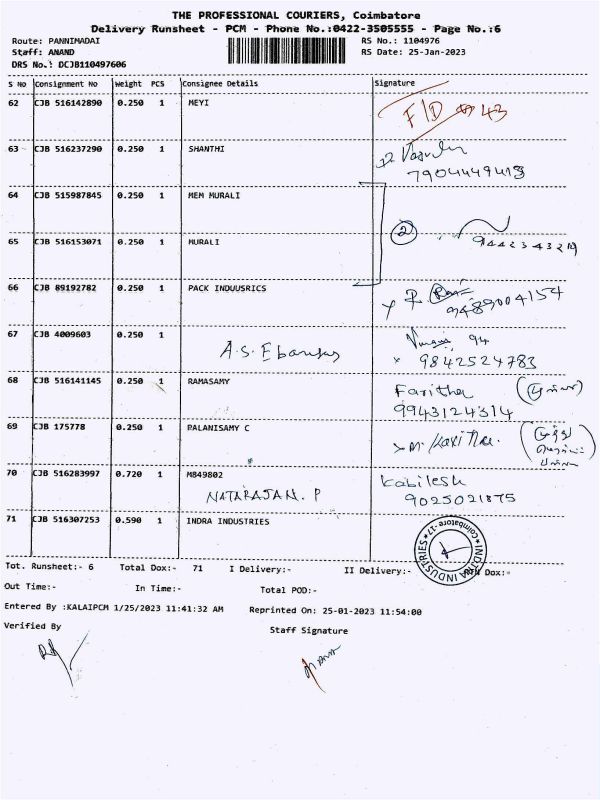 THE PROFESSIONAL COURIERS, Coimbatore
Delivery Runsheet - PCM - Phone No.:0422-3505555 - Page No.:6
Route: PANNIMADAI RS No.: 1104976
Staff: ANAND RS Date: 25-Jan-2023
DRS No.: DCJB110497606
S No Consignment No Weight PCS Consignee Details Signature
62 CJB 516142890 0.250 1 MEYI F/D 43
63 CJB 516237290 0.250 1 SHANTHI
7904449413
64 CJB 515987845 0.250 1 MEM MURALI
2
65 CJB 516153071 0.250 1 MURALI
66 CJB 89192782 0.250 1 PACK INDUUSRICS
9489004154
67 CJB 4009603 0.250 1 94
A.S. × 9842524783
68 CJB 516141145 0.250 1 RAMASAMY Faritha
9943124314
69 CJB 175778 0.250 1 PALANISAMY C
70 CJB 516283997 0.720 1 M849802 Kabilesh
NATARAJAN. P 9025021875
71 CJB 516307253 0.590 1 INDRA INDUSTRIES
INDRA INDUSTRIES Coimbatore-17
Tot. Runsheet:- 6 Total Dox:- 71 I Delivery:- II Delivery:- Dox:-
Out Time:- In Time:- Total POD:-
Entered By :KALAIPCM 1/25/2023 11:41:32 AM Reprinted On: 25-01-2023 11:54:00
Verified By Staff Signature